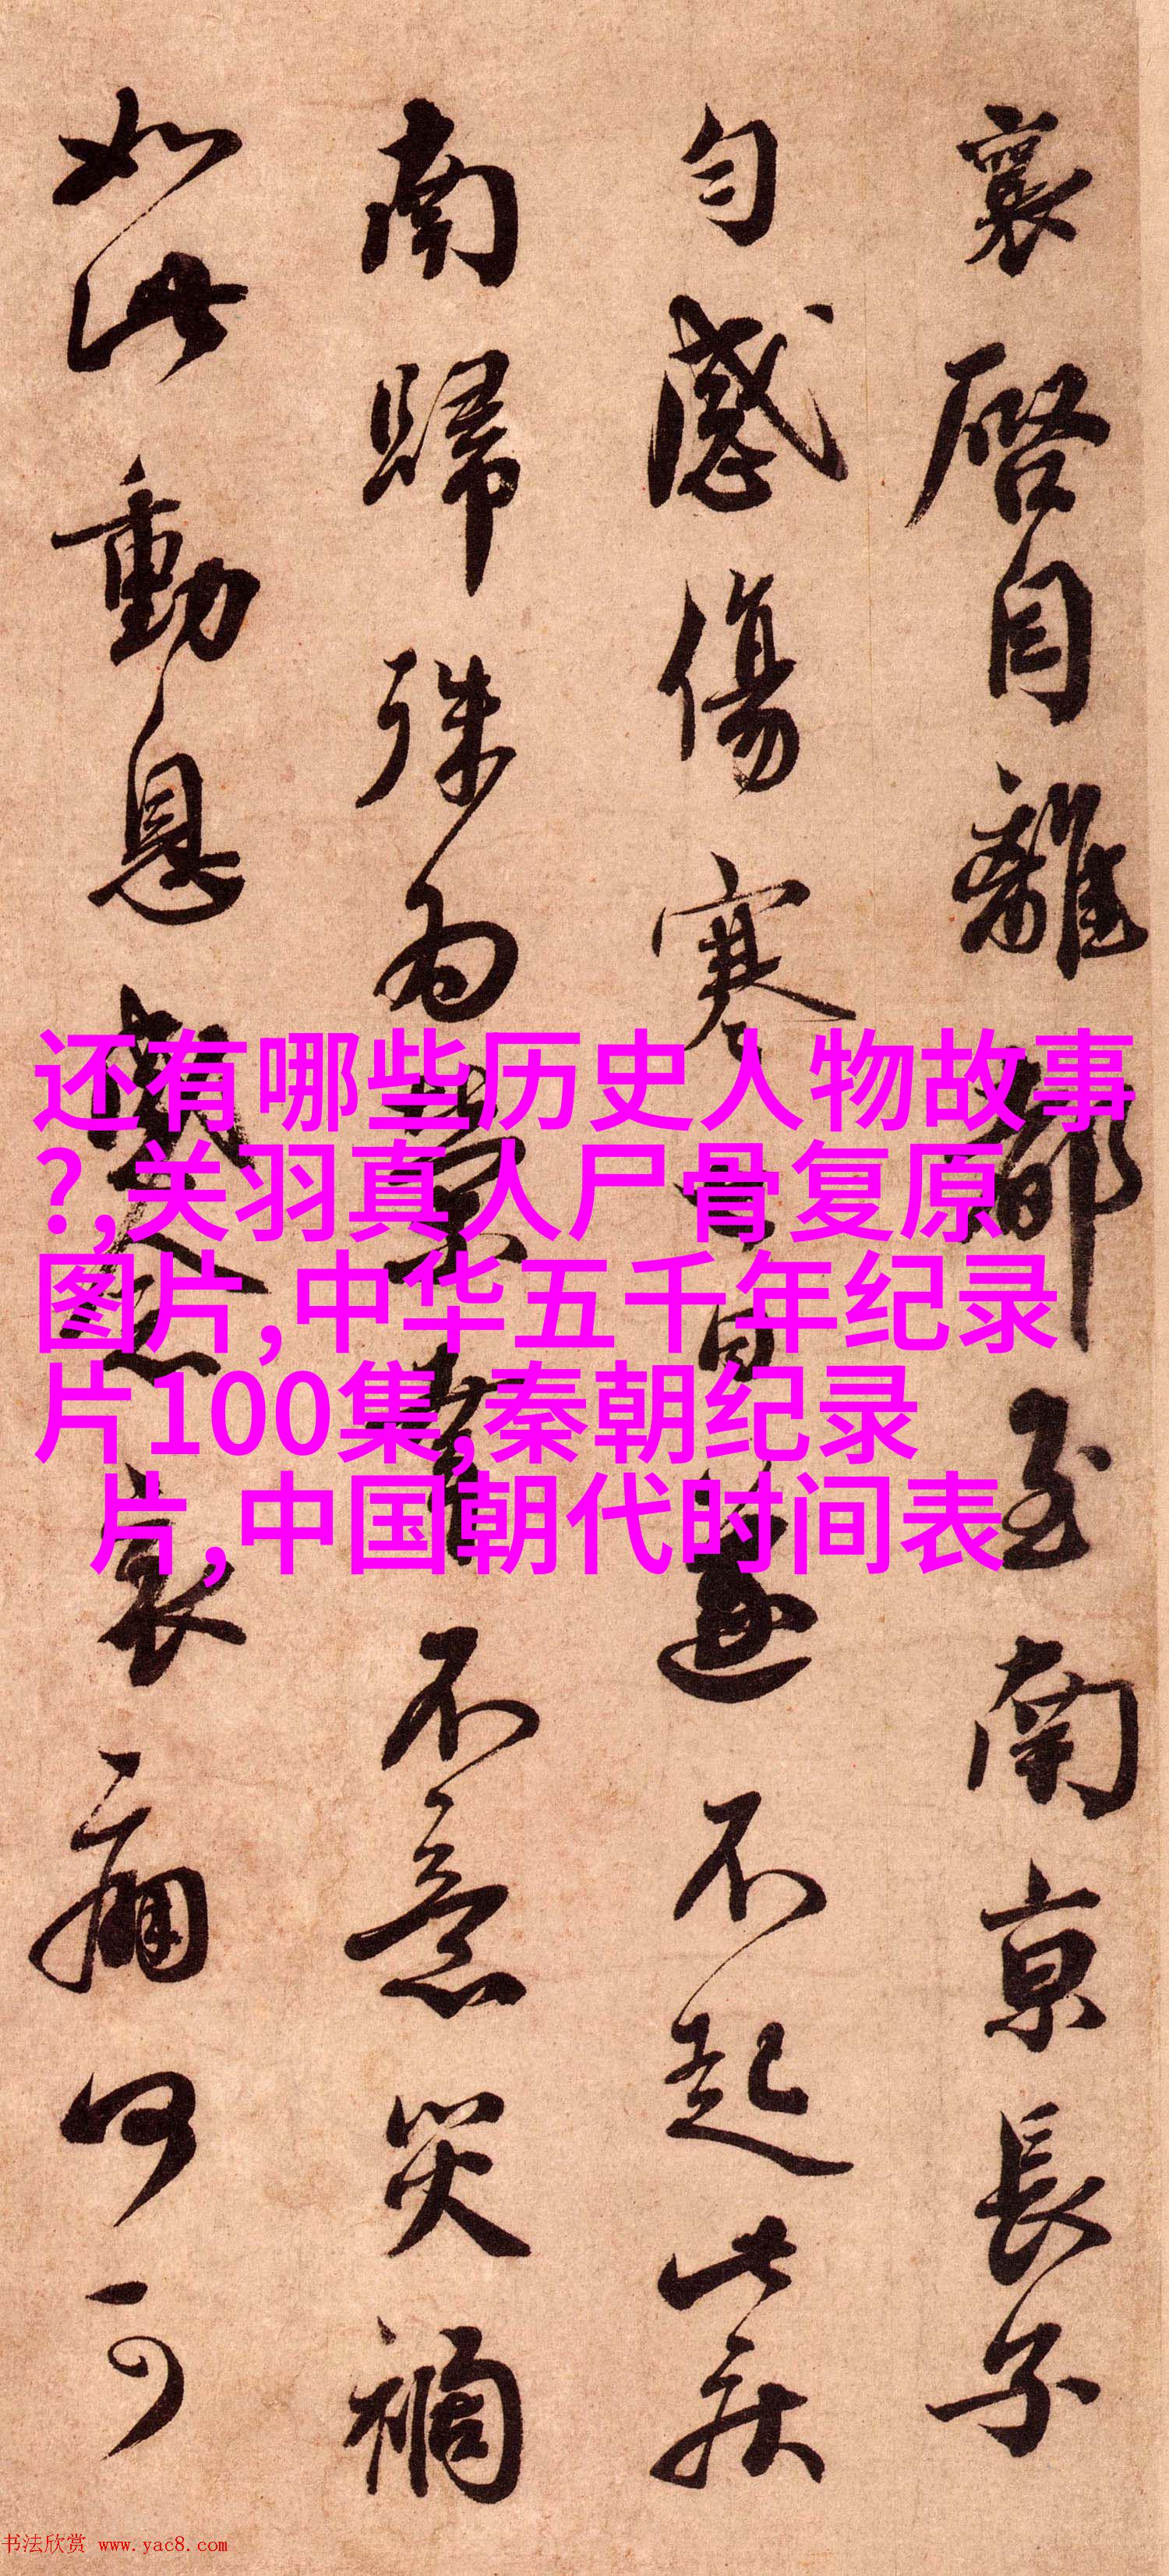 襄啓自離都至南京長子
匀感傷寒七日遂不起此疾
南歸殊為榮幸不意災禍
如此動息感念哀痛何可
还有哪些历史人物故事
?,关羽真人尸骨复原
图片,中华五千年纪录
片100集,秦朝纪录
片,中国朝代时间表
书法欣赏 www.yac8.com